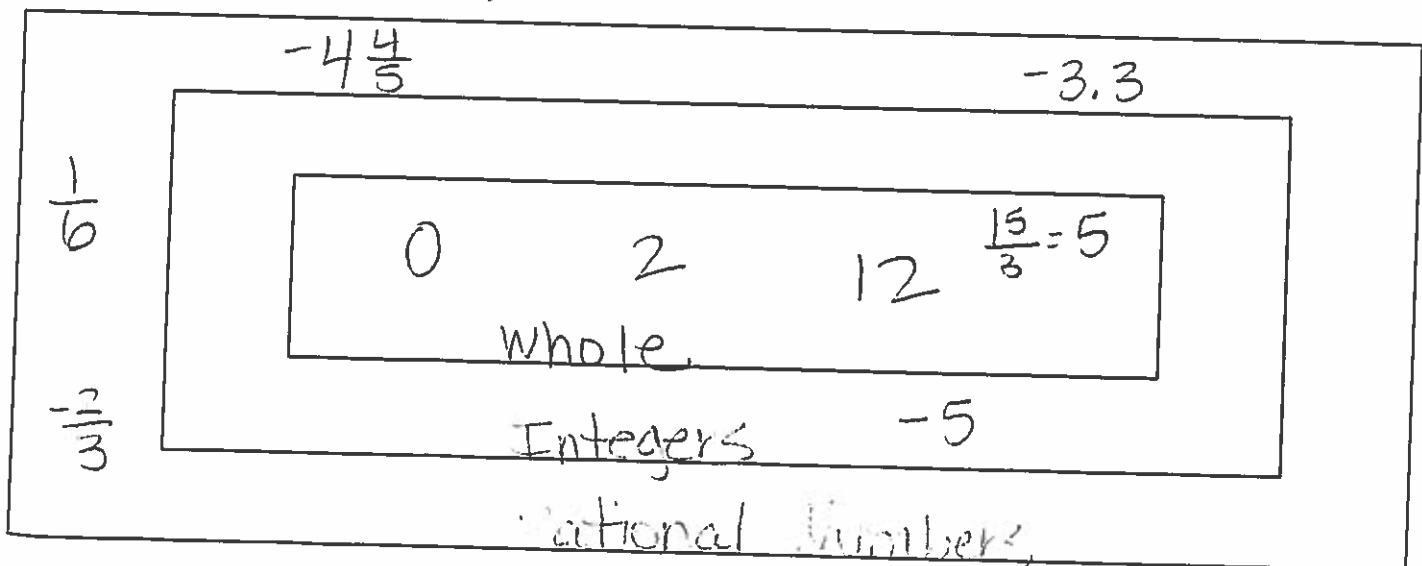 -4 4/5 -3.3
1/6
0 2 12 15/3 = 5
Whole
-2/3
Integers -5
ational Numbers